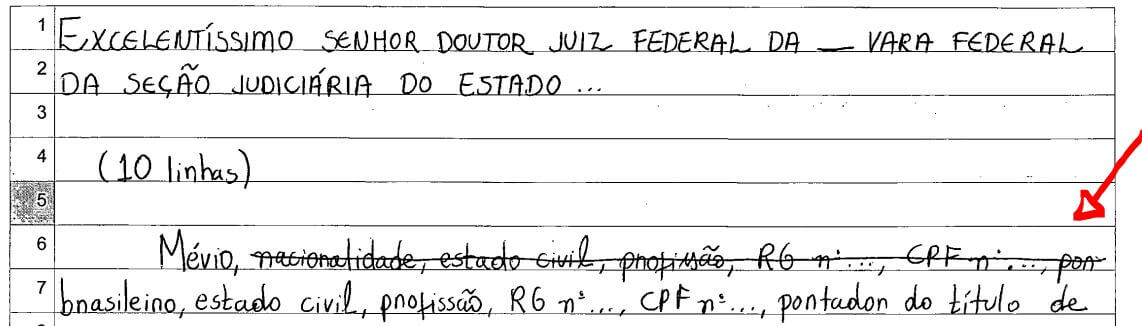 1 EXCELENTÍSSIMO SENHOR DOUTOR JUIZ FEDERAL DA __ VARA FEDERAL
2 DA SEÇÃO JUDICIÁRIA DO ESTADO ...
3
4 (10 linhas)
5
6 Mévio, nacionalidade, estado civil, profissão, RG nº..., CPF nº..., por-
7 brasileiro, estado civil, profissão, RG nº..., CPF nº..., portador do título de